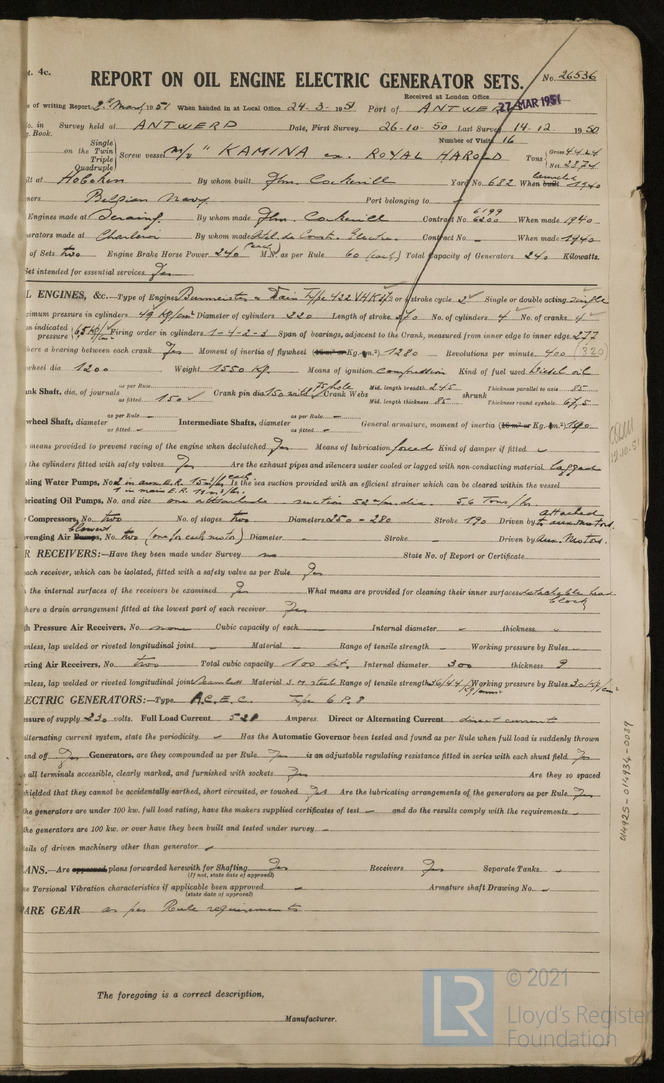 t. 4c.
REPORT ON OIL ENGINE ELECTRIC GENERATOR SETS.
No. 26536
Received at London Office
27 MAR 1951
of writing Report 2d March 1951 When handed in at Local Office 24-3-1951 Port of ANTWERP
No. in Survey held at ANTWERP Date, First Survey 26-10-50 Last Survey 14-12-1950
g. Book. Number of Visits 16
Single
on the Twin
Triple
Quadruple
Screw vessel m/v "KAMINA ex. ROYAL HAROLD Tons Gross 4424
Net 2374
ilt at Hoboken By whom built John Cockerill Yard No. 682 When built launched 1940
ners Belgian Navy Port belonging to -
Engines made at Seraing By whom made John Cockerill Contract No. 6199 6200 When made 1940
erators made at Charleroi By whom made Contract No. - When made 1940
of Sets two Engine Brake Horse Power 240 each M.N. as per Rule 60 (each) Total Capacity of Generators 240 Kilowatts.
Set intended for essential services Yes
L ENGINES, &c.—Type of Engines Burmeister & Wain Type 422 or 4 stroke cycle 2 Single or double acting single
ximum pressure in cylinders 49 kg/cm² Diameter of cylinders 220 Length of stroke 370 No. of cylinders 4 No. of cranks 4
an indicated pressure Firing order in cylinders 1-4-2-3 Span of bearings, adjacent to the Crank, measured from inner edge to inner edge 277
here a bearing between each crank Yes Moment of inertia of flywheel 1280 Revolutions per minute 400 (320)
wheel dia 1200 Weight 1550 kg. Means of ignition compression Kind of fuel used Diesel oil
nk Shaft, dia. of journals as per Rule - as fitted 150 Crank pin dia 150 Crank Webs Mid. length breadth 245 Mid. length thickness 85 shrunk Thickness parallel to axis 85 Thickness round eyehole 67,5
wheel Shaft, diameter as per Rule - as fitted - Intermediate Shafts, diameter as per Rule - as fitted - General armature, moment of inertia 190
means provided to prevent racing of the engine when declutched Yes Means of lubrication forced Kind of damper if fitted -
the cylinders fitted with safety valves Yes Are the exhaust pipes and silencers water cooled or lagged with non-conducting material lagged
oling Water Pumps, No. Is the sea suction provided with an efficient strainer which can be cleared within the vessel
bricating Oil Pumps, No. and size one suction 52 m/m dia. 5.6 Tons/hr.
Compressors, No. two No. of stages two Diameters 250 - 280 Stroke 190 Driven by attached to aux. motors.
venging Air Pumps, blowers No. two (one for each motor) Diameter - Stroke - Driven by Aux. Motors.
R RECEIVERS:—Have they been made under Survey no State No. of Report or Certificate
ach receiver, which can be isolated, fitted with a safety valve as per Rule Yes
n the internal surfaces of the receivers be examined Yes What means are provided for cleaning their inner surfaces detachable head block
here a drain arrangement fitted at the lowest part of each receiver Yes
gh Pressure Air Receivers, No. none Cubic capacity of each - Internal diameter - thickness -
mless, lap welded or riveted longitudinal joint - Material - Range of tensile strength - Working pressure by Rules -
rting Air Receivers, No. two Total cubic capacity 100 lit. Internal diameter 300 thickness 9
mless, lap welded or riveted longitudinal joint seamless Material S.M. steel Range of tensile strength 36/44 kg/mm² Working pressure by Rules 30 kg/cm²
ECTRIC GENERATORS:—Type A.C.E.C. Type 6 P.8
ssure of supply 230 volts. Full Load Current 521 Amperes. Direct or Alternating Current direct current
alternating current system, state the periodicity - Has the Automatic Governor been tested and found as per Rule when full load is suddenly thrown
and off Yes Generators, are they compounded as per Rule Yes is an adjustable regulating resistance fitted in series with each shunt field Yes
all terminals accessible, clearly marked, and furnished with sockets Yes Are they so spaced
shielded that they cannot be accidentally earthed, short circuited, or touched Yes Are the lubricating arrangements of the generators as per Rule Yes
the generators are under 100 kw. full load rating, have the makers supplied certificates of test - and do the results comply with the requirements -
the generators are 100 kw. or over have they been built and tested under survey -
ails of driven machinery other than generator -
ANS.—Are approved plans forwarded herewith for Shafting Yes Receivers Yes Separate Tanks -
(If not, state date of approval)
e Torsional Vibration characteristics if applicable been approved - Armature shaft Drawing No. -
(state date of approval)
ARE GEAR as per Rule requirements
The foregoing is a correct description,
Manufacturer.
19.10.51
014925-014934-0039
LR
© 2021
Lloyd's Register
Foundation